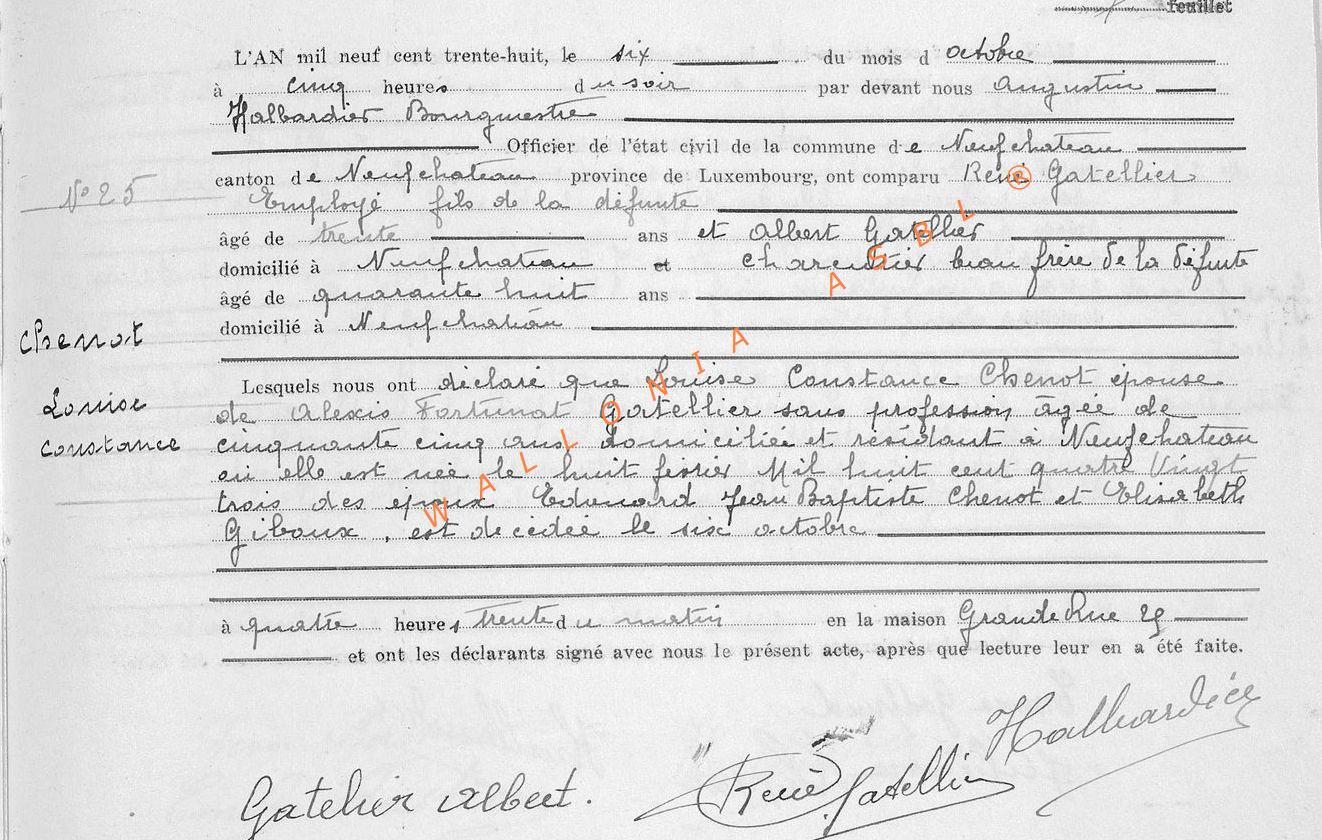 feuillet
L'AN mil neuf cent trente-huit, le six du mois d octobre
à cinq heures du soir par devant nous Augustin
Halbardier Bourgmestre
Officier de l'état civil de la commune de Neufchateau
N° 25
canton de Neufchateau province de Luxembourg, ont comparu René Gatellier
Employé fils de la défunte
âgé de trente ans et Albert Gatellier
domicilié à Neufchateau et charcutier beau frère de la défunte
âgé de quarante huit ans
domicilié à Neufchateau
Chenot
Louise
Constance
Lesquels nous ont déclaré que Louise Constance Chenot épouse
de Alexis Fortunat Gatellier sans profession âgée de
cinquante cinq ans domiciliée et résidant à Neufchateau
où elle est née le huit février Mil huit cent quatre Vingt
trois des epoux Edouard Jean Baptiste Chenot et Elisabeth
Giboux, est decédée le six octobre
à quatre heures trente du matin en la maison Grande Rue 29
et ont les déclarants signé avec nous le présent acte, après que lecture leur en a été faite.
Halbardier
René Gatellier
Gatelier Albert.
WALLONIA ASBL ®